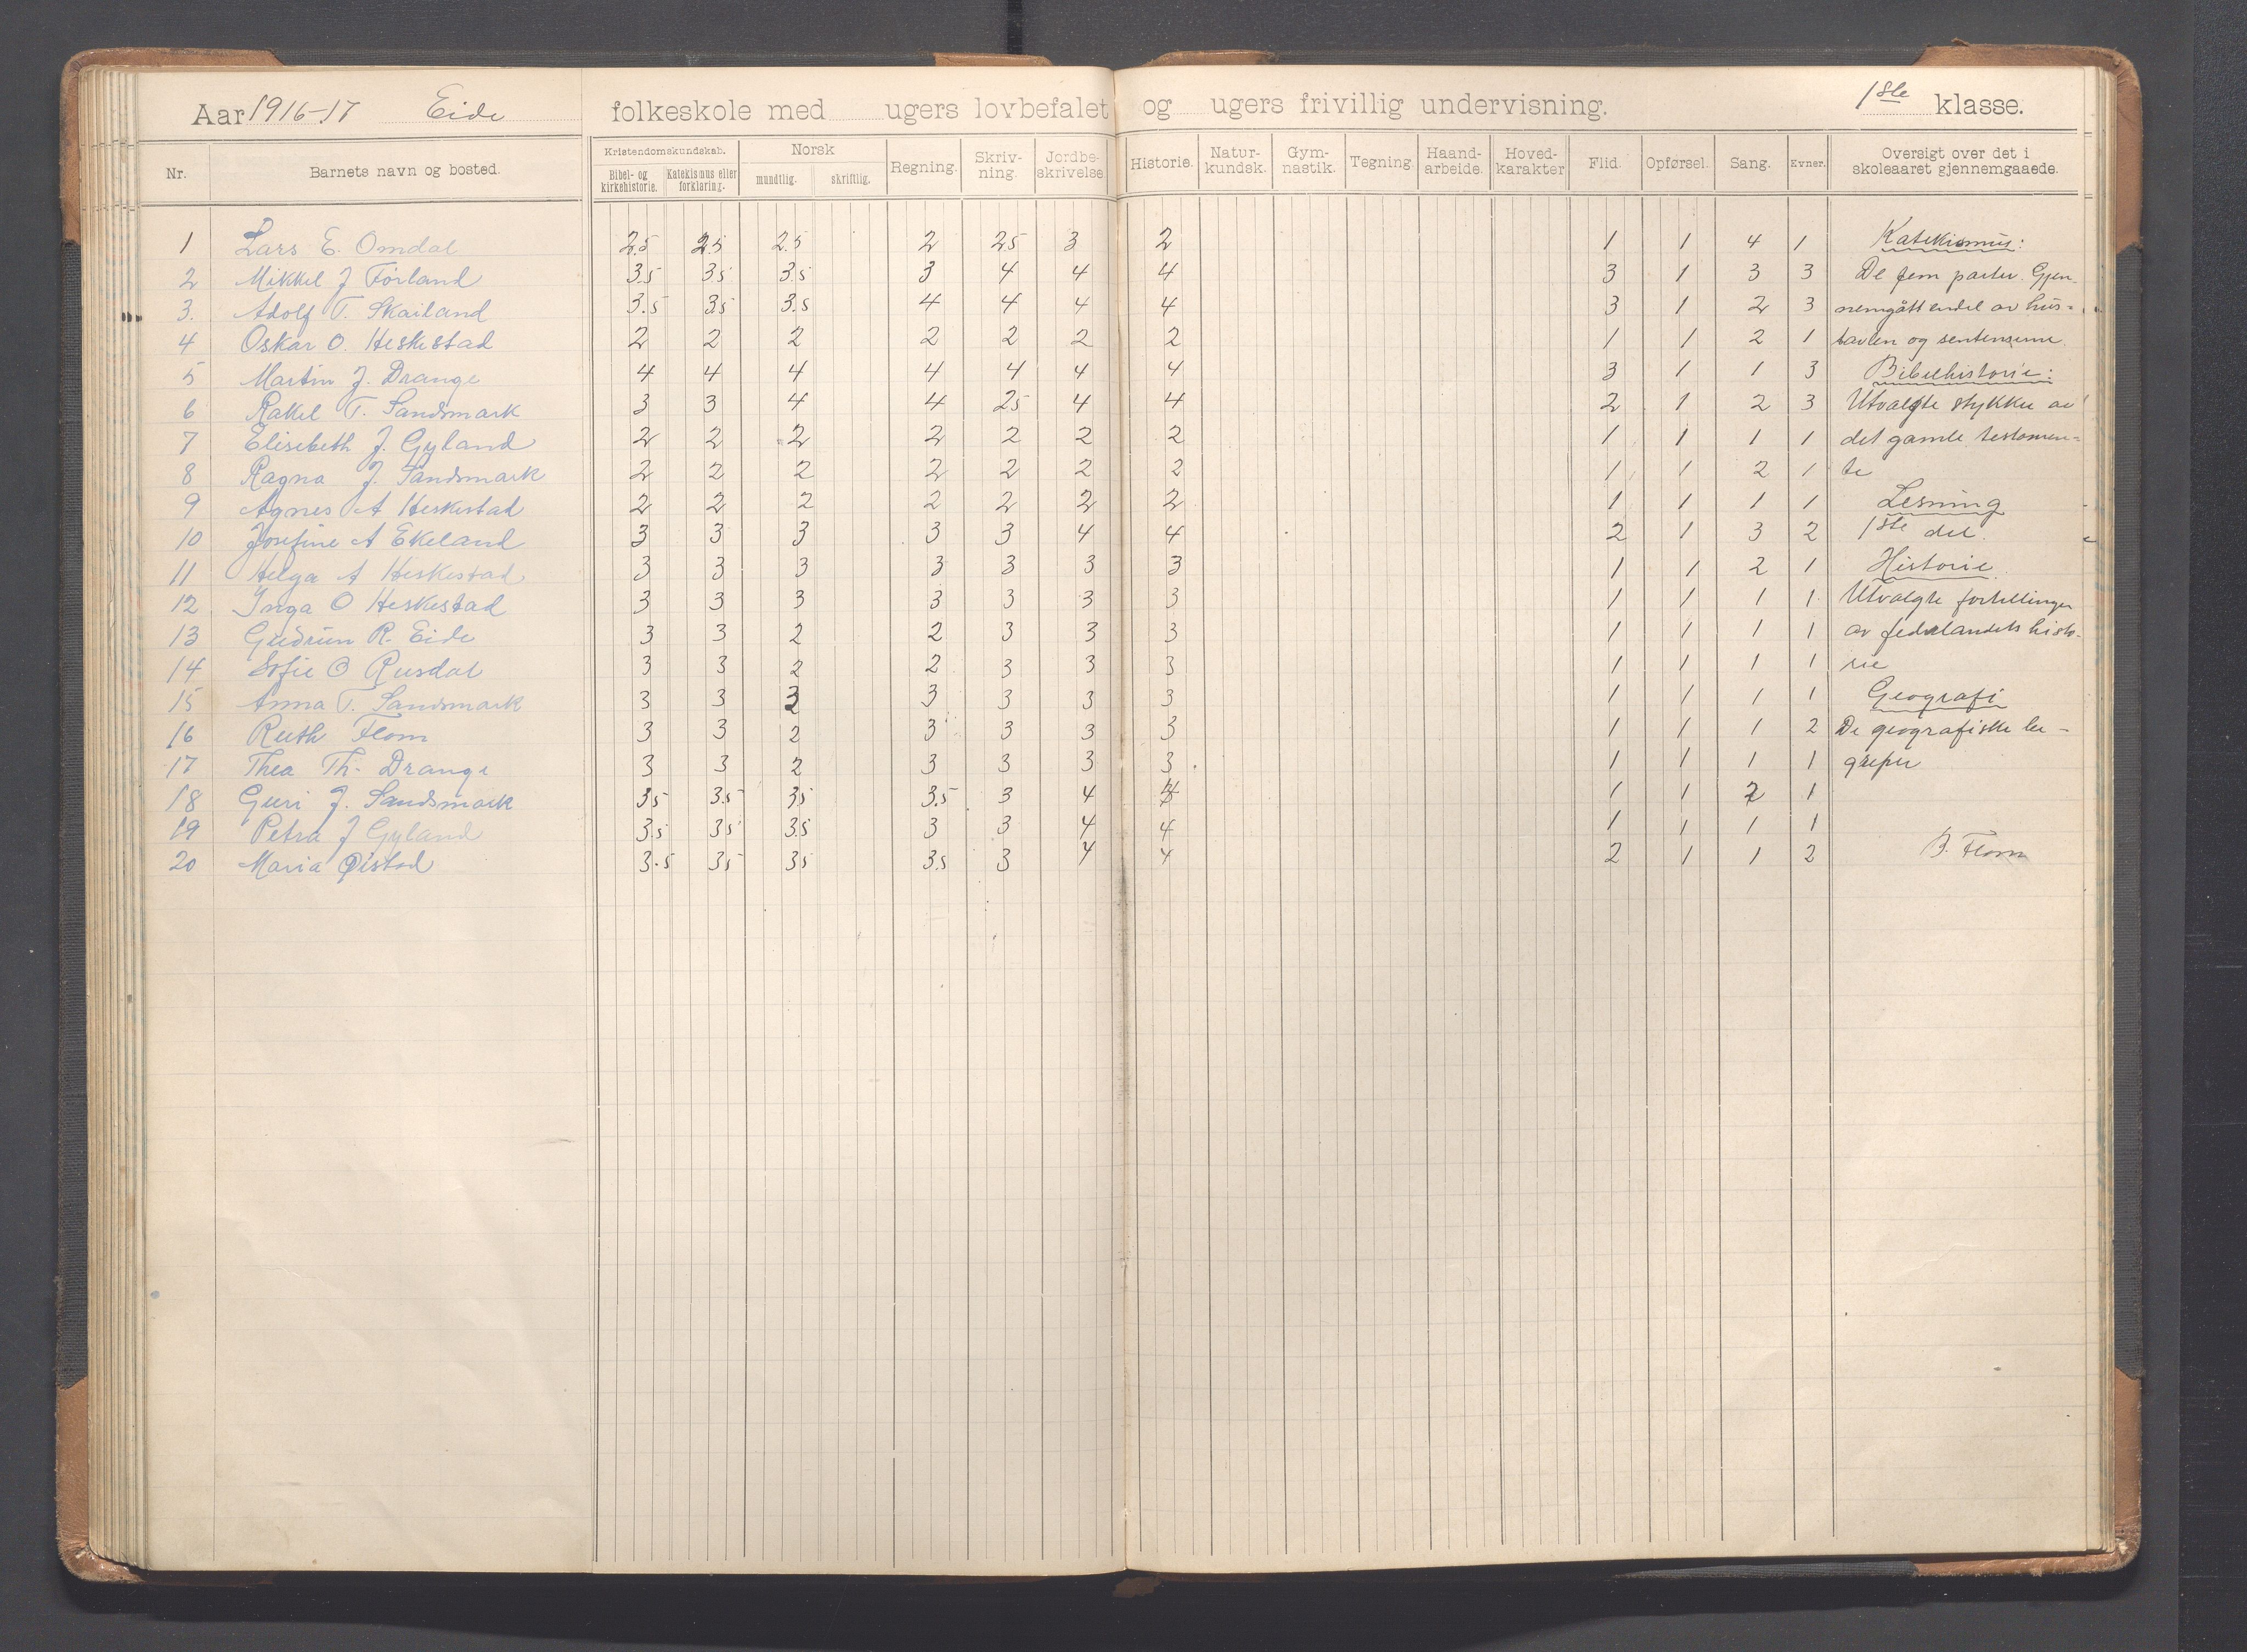 Aar 1916-17 Eide folkeskole med ugers lovbefalet og ugers frivillig undervisning. 1ste klasse.
Nr. Barnets navn og bosted. Kristendomskundskab. Bibel- og kirkehistorie. Katekismus eller forklaring. Norsk mundtlig. skriftlig. Regning. Skriv-ning. Jordbe-skrivelse Historie. Natur-kundsk. Gym-nastik. Tegning. Haand-arbeide. Hoved-karakter Flid. Opførsel. Sang. Evner. Oversigt over det i skoleaaret gjennemgaaede.
1 Lars E. Omdal 2.5 2.5 2.5 2 2.5 3 2 1 1 4 1 Katekismus:
2 Mikkel J Førland 3.5 3.5 3.5 3 4 4 4 3 1 3 3 De fem parter. Gjen-
3. Adolf T. Skailand 3.5 3.5 3.5 4 4 4 4 3 1 2 3 nemgått endel av hus-
4 Oskar O. Heskestad 2 2 2 2 2 2 2 1 1 2 1 tavlen og sentensene.
5 Martin J. Drange 4 4 4 4 4 4 4 3 1 1 3 Bibelhistorie:
6 Rakel T. Sandsmark 3 3 4 4 2.5 4 4 2 1 2 3 Utvalgte stykker av
7 Elisebeth J. Gyland 2 2 2 2 2 2 2 1 1 1 1 det gamle testamen-
8 Ragna J. Sandsmark 2 2 2 2 2 2 2 1 1 2 1 te
9 Agnes A Heskestad 2 2 2 2 2 2 2 1 1 1 1 Lesning
10 Josefine A Ekeland 3 3 3 3 3 4 4 2 1 3 2 1ste del.
11 Helga A Heskestad 3 3 3 3 3 3 3 1 1 2 1 Historie.
12 Inga O Heskestad 3 3 3 3 3 3 3 1 1 1 1 Utvalgte fortellinger
13 Gudrun R. Eide 3 3 2 2 3 3 3 1 1 1 1 av fedrelandets histo-
14 Sofie O Rusdal 3 3 2 2 3 3 3 1 1 1 1 rie
15 Anna T. Sandsmark 3 3 3 3 3 3 1 1 1 1 Geografi
16 Ruth Flom 3 3 2 3 3 3 3 1 1 1 2 De geografiske be-
17 Thea Th. Drange 3 3 2 3 3 3 3 1 1 1 1 greper
18 Guri J. Sandsmark 3.5 3.5 3.5 3.5 3 4 1 1 2 1
19 Petra J Gyland 3.5 3.5 3.5 3 3 4 4 1 1 1 1
20 Maria Øistad 3.5 3.5 3.5 3.5 3 4 4 2 1 1 2 B. Flom